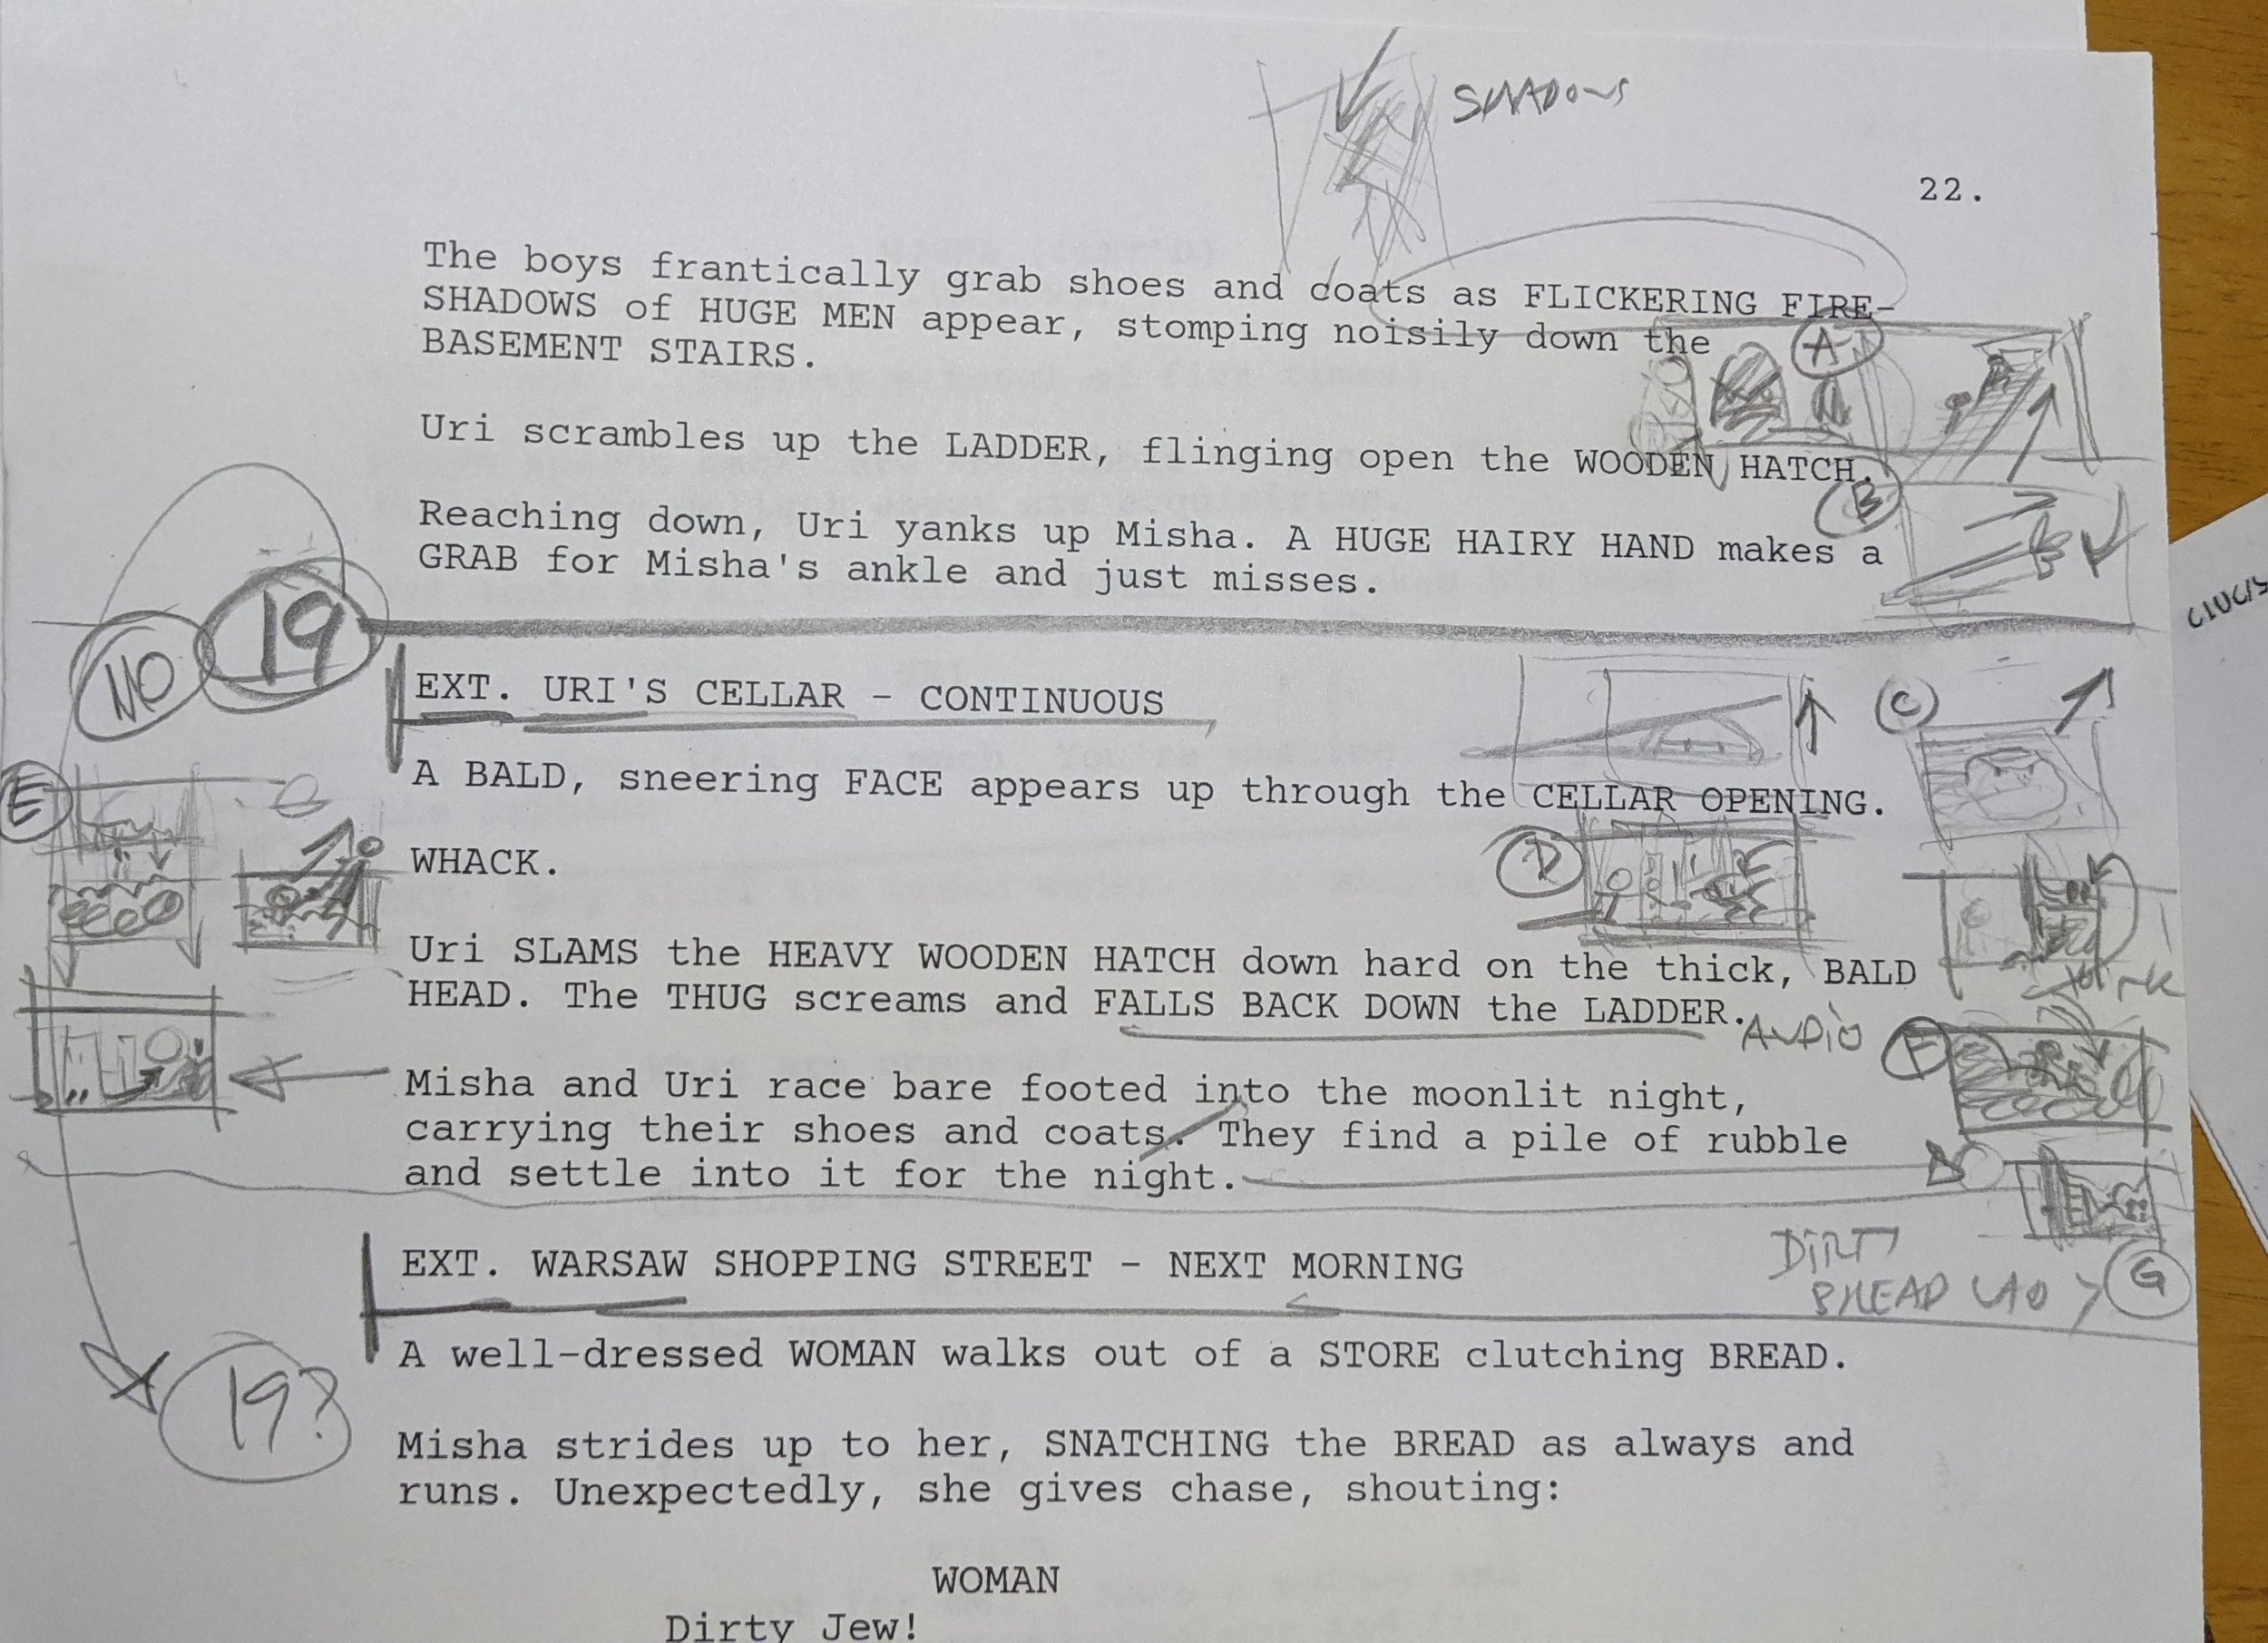 SHADOWS
22.
The boys frantically grab shoes and coats as FLICKERING FIRE-
SHADOWS of HUGE MEN appear, stomping noisily down the
BASEMENT STAIRS.
A
Uri scrambles up the LADDER, flinging open the WOODEN HATCH.
B
Reaching down, Uri yanks up Misha. A HUGE HAIRY HAND makes a
GRAB for Misha's ankle and just misses.
NO 19
EXT. URI'S CELLAR - CONTINUOUS
C
A BALD, sneering FACE appears up through the CELLAR OPENING.
E
WHACK.
D
Uri SLAMS the HEAVY WOODEN HATCH down hard on the thick, BALD
HEAD. The THUG screams and FALLS BACK DOWN the LADDER.
AUDIO
F
Misha and Uri race bare footed into the moonlit night,
carrying their shoes and coats. They find a pile of rubble
and settle into it for the night.
EXT. WARSAW SHOPPING STREET - NEXT MORNING
DIRTY
BREAD
G
A well-dressed WOMAN walks out of a STORE clutching BREAD.
19?
Misha strides up to her, SNATCHING the BREAD as always and
runs. Unexpectedly, she gives chase, shouting:
WOMAN
Dirty Jew!